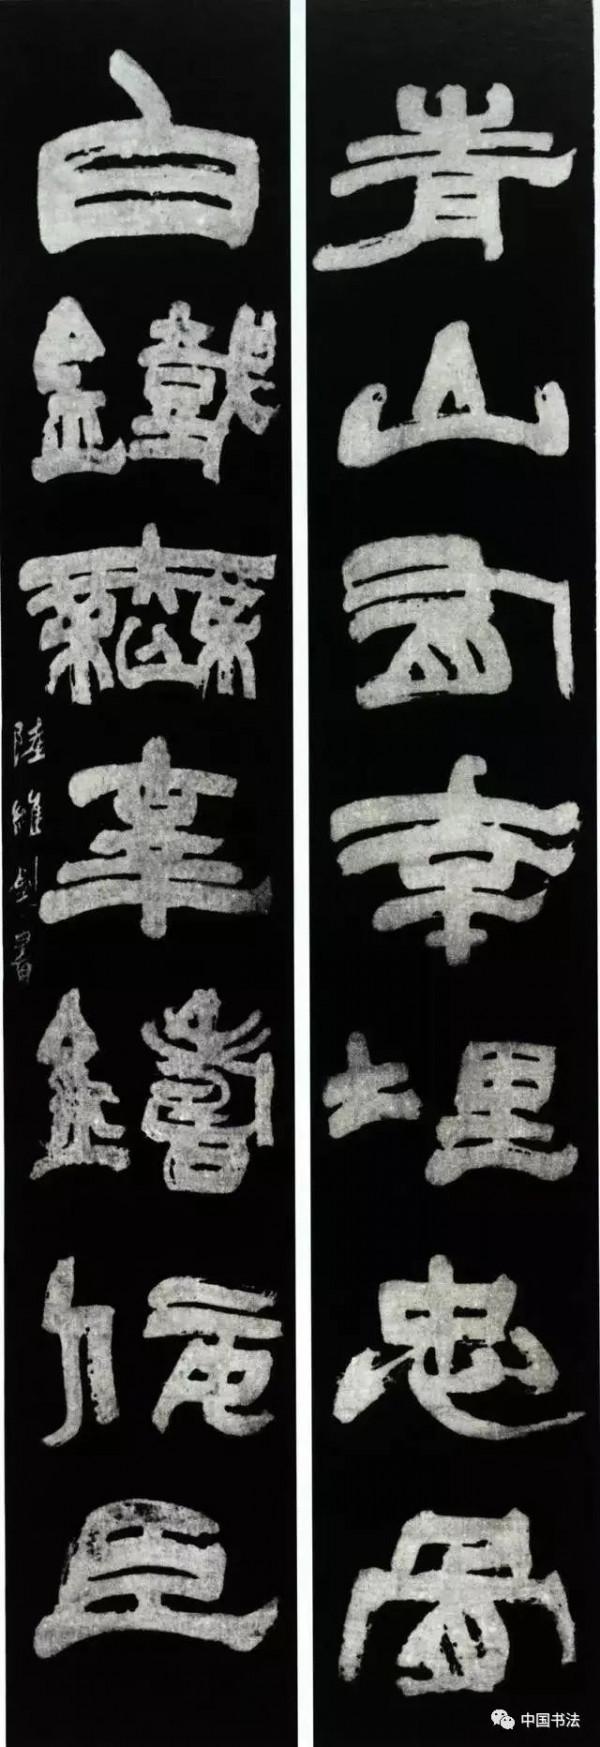 青山有幸埋忠骨
白鐵無辜鑄佞臣
陸維釗書
中国书法